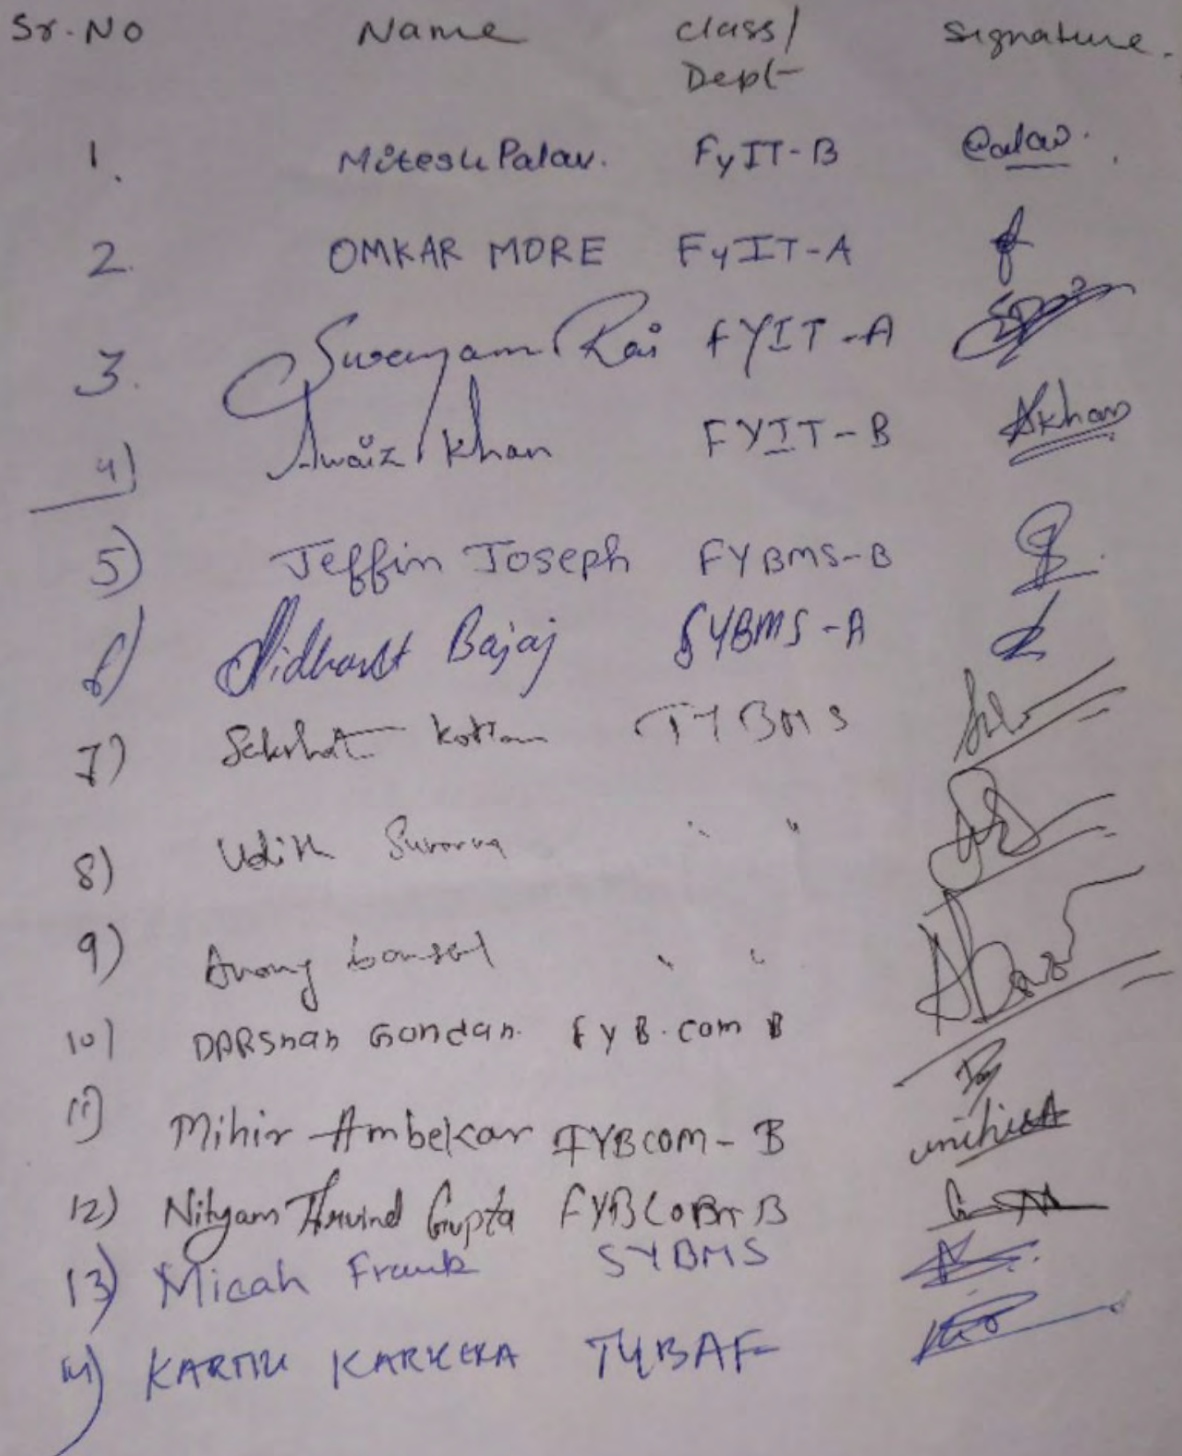 Sr. No Name class/ Signature.
Dept
1. Mitesh Palav. FyIT-B Palav.
2. OMKAR MORE FyIT-A
3. Swayam Rai FYIT-A
4) Awaiz Khan FYIT-B AKhan
5) Jeffin Joseph FYBMS-B
6) Sidharth Bajaj SYBMS-A
7) Kotian TYBMS
8) Udith Suvarna " "
9) bansal " "
10) DARShan Gondan. FyB.com B
11) Mihir Ambekar FYBCOM-B
12) Nityam Arvind Gupta B
13) Micah Frank SYBMS
14) KARTIK KARKERA TYBAF